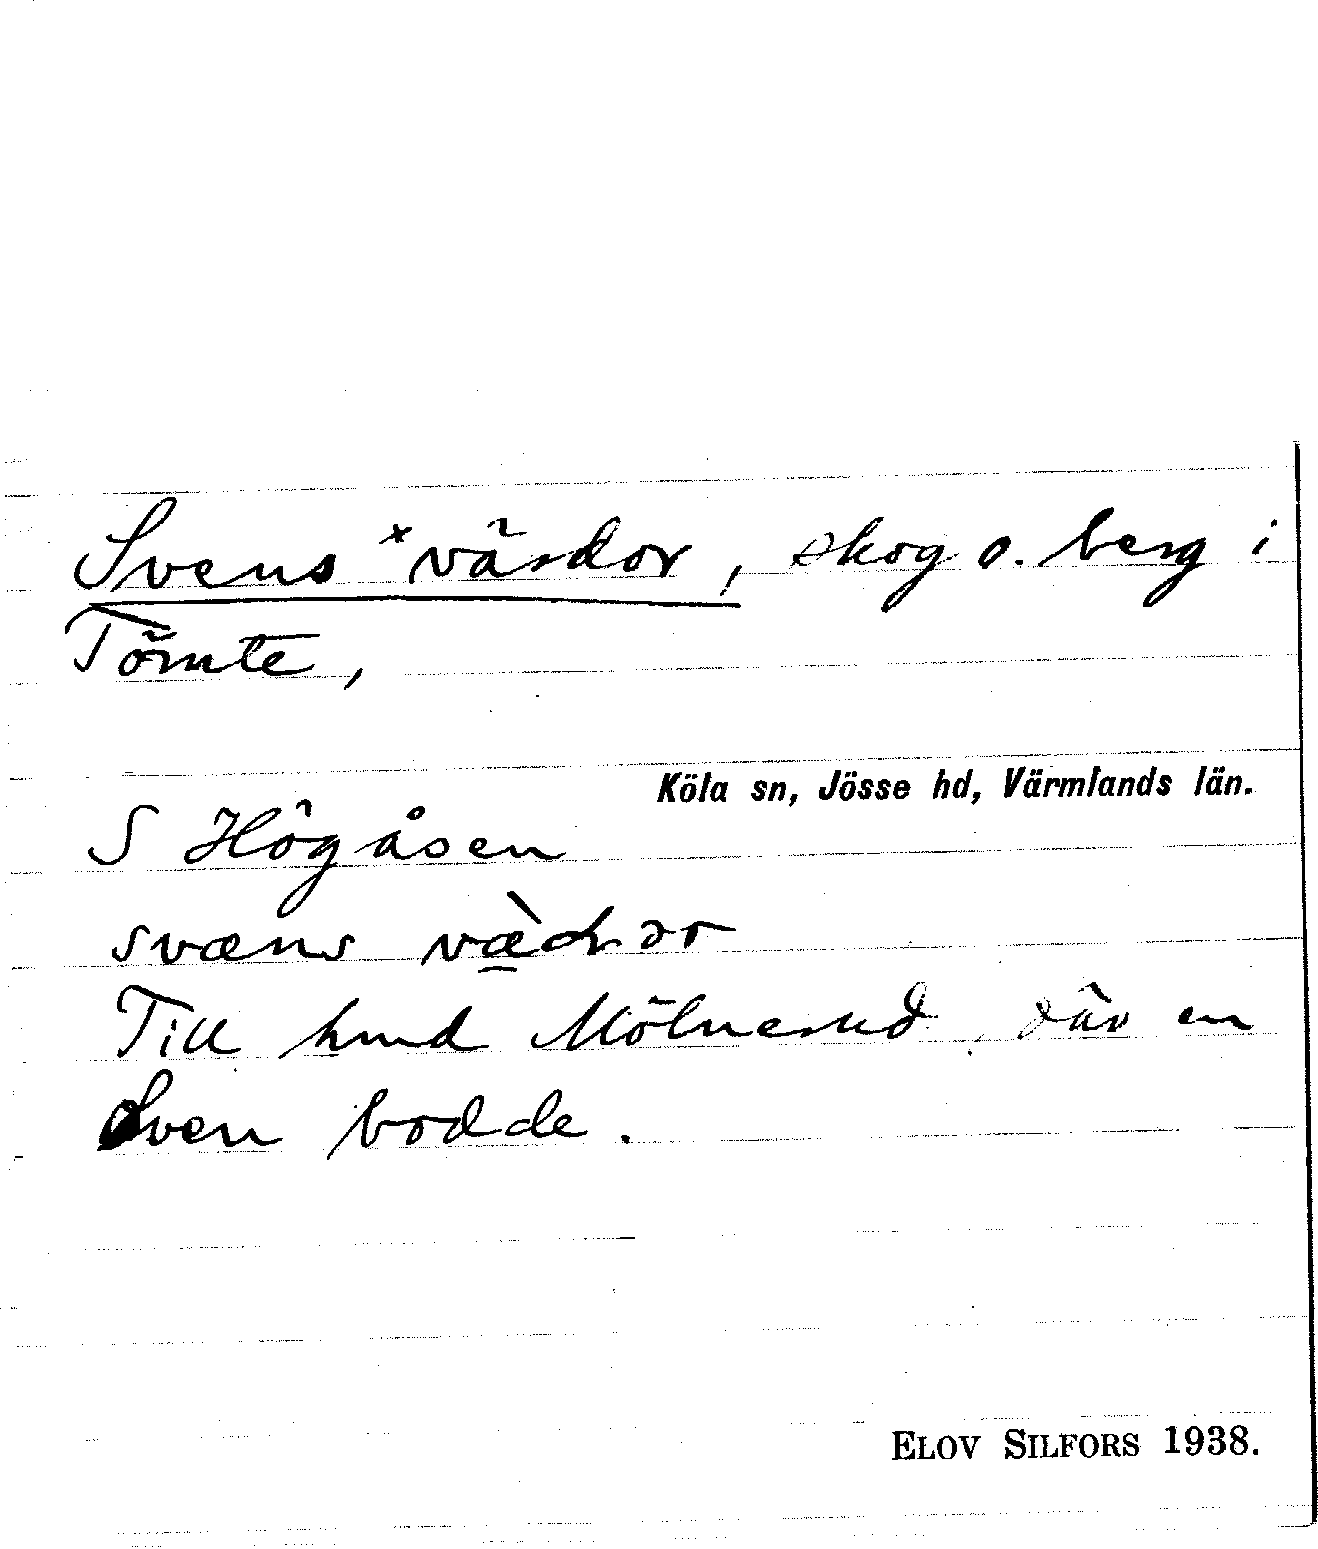 Svens ˣvärdor, skog o. berg i
Tömte,
Köla sn, Jösse hd, Värmlands län.
S Högåsen
svæns
Till hmd Mölnerud, där en
Sven bodde.
ELOV SILFORS 1938.